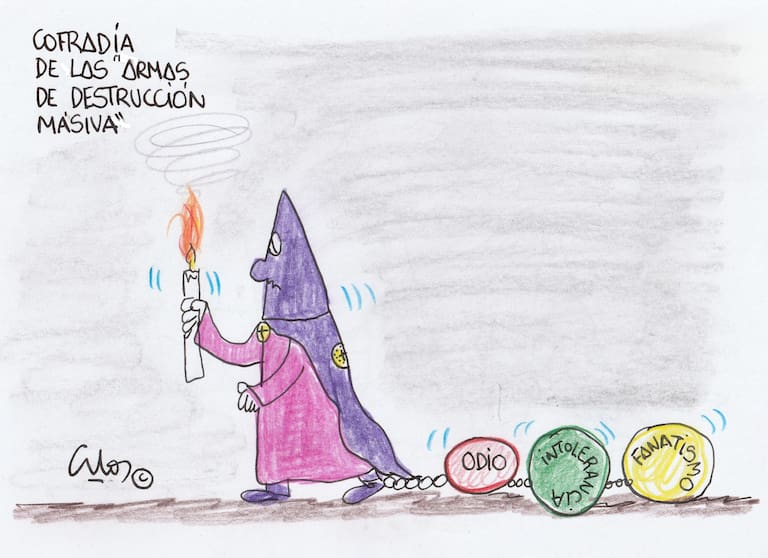 COFRADÍA
DE LAS "ARMAS
DE DESTRUCCIÓN
MÁSIVA"
ODIO
INTOLERANCIA
FANATISMO
©